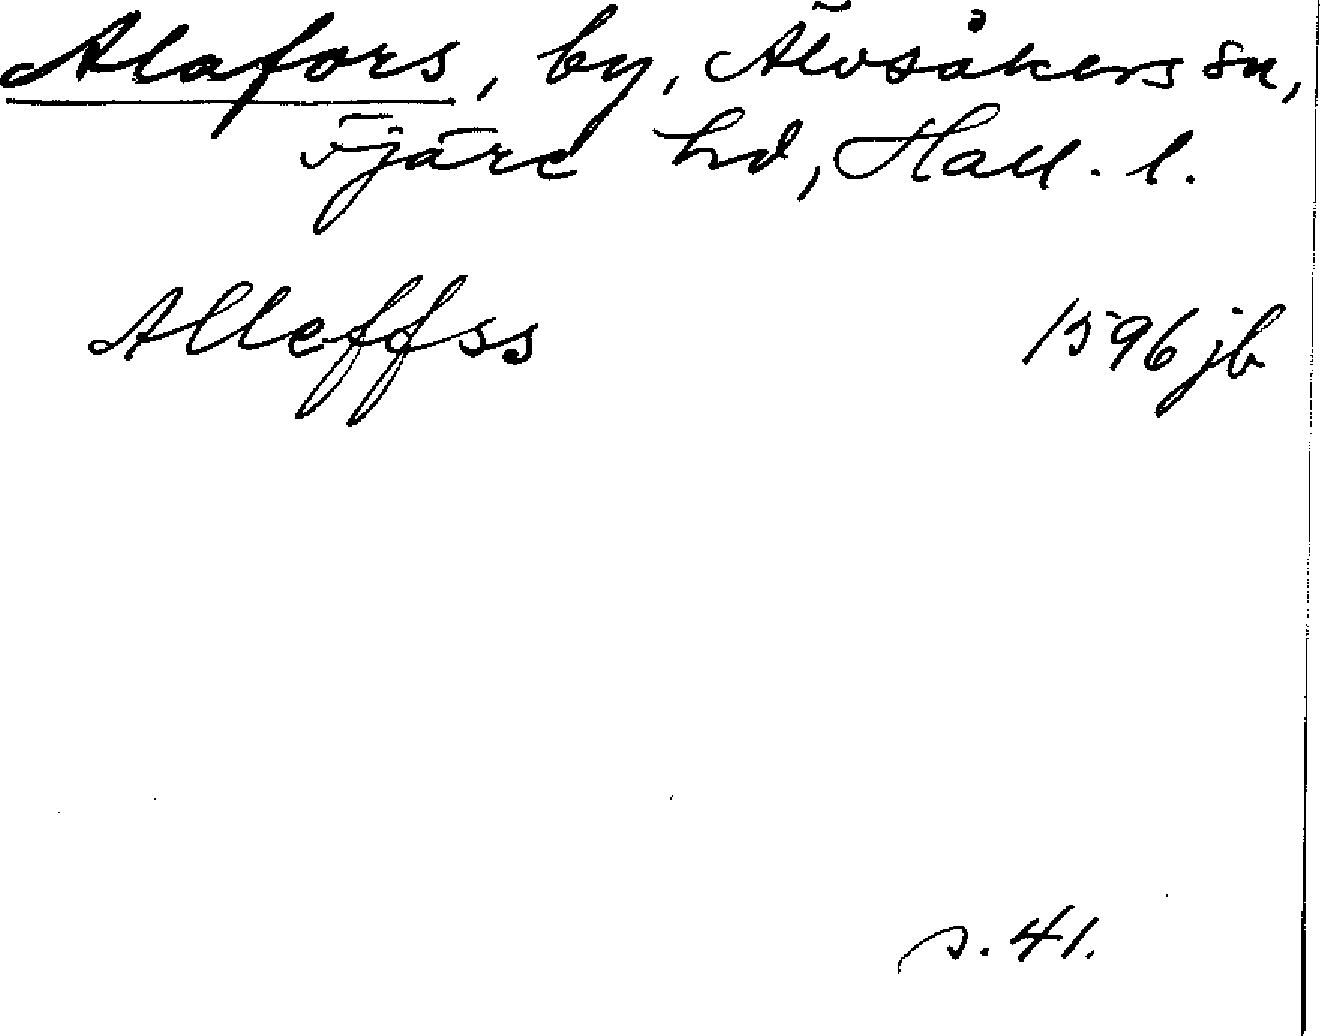 Alafors, by, Älvsåkers sn,
Fjäre hd, Hall. l.
Alleffss 1596 jb
s. 41.